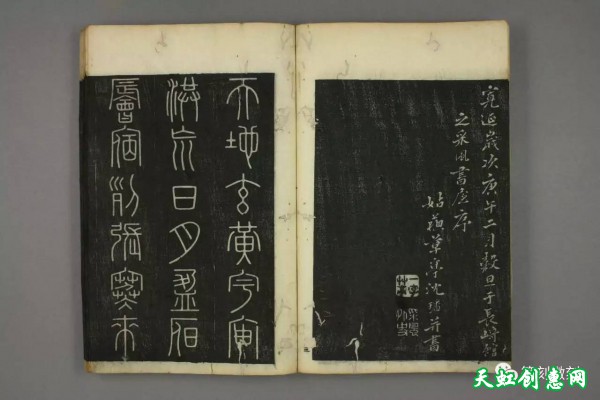 寬延歲次庚午二月穀旦于長崎館
之采風書屋序
姑蘇草亭沈并書
天地玄黃宇宙
洪荒日月盈昃
辰宿列張寒來
天虹创惠网